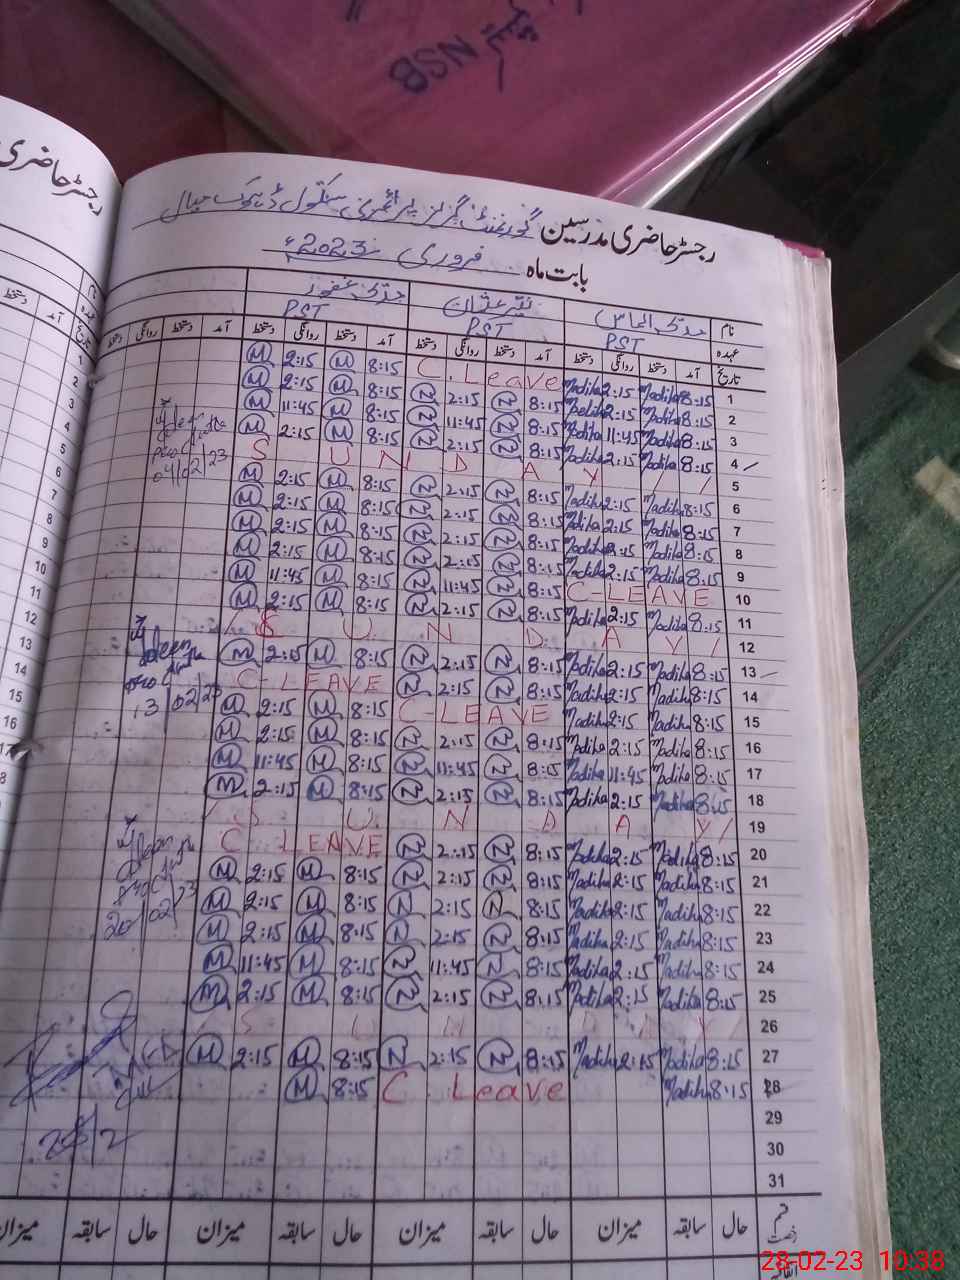 NSB
رجسٹر حاضری
رجسٹر حاضری مدرسین گورنمنٹ گرلز پرائمری سکول ڈہوک جبال
بابت ماہ فروری 2023ء
نام
عہدہ PST PST PST
تاریخ آمد دستخط روانگی دستخط آمد دستخط روانگی دستخط آمد دستخط روانگی دستخط آمد دستخط روانگی دستخط
1 8:15 Madiha 2:15 Madiha C. Leave 8:15 M 2:15 M
2 8:15 Madiha 2:15 Madiha 8:15 N 2:15 N 8:15 M 2:15 M
3 8:15 Madiha 11:45 Madiha 8:15 N 11:45 N 8:15 M 11:45 M
4 8:15 Madiha 2:15 Madiha 8:15 N 2:15 N 8:15 M 2:15 M
5 S U N D A Y / /
6 8:15 Madiha 2:15 Madiha 8:15 N 2:15 N 8:15 M 2:15 M
7 8:15 Madiha 2:15 Madiha 8:15 N 2:15 N 8:15 M 2:15 M
8 8:15 Madiha 2:15 Madiha 8:15 N 2:15 N 8:15 M 2:15 M
9 8:15 Madiha 2:15 Madiha 8:15 N 2:15 N 8:15 M 2:15 M
10 C-LEAVE 8:15 N 11:45 N 8:15 M 11:45 M
11 8:15 Madiha 2:15 Madiha 8:15 N 2:15 N 8:15 M 2:15 M
12 / S U N D A Y /
13 8:15 Madiha 2:15 Madiha 8:15 N 2:15 N 8:15 M 2:15 M
14 8:15 Madiha 2:15 Madiha 8:15 N 2:15 N C-LEAVE
15 8:15 Madiha 2:15 Madiha C-LEAVE 8:15 M 2:15 M
16 8:15 Madiha 2:15 Madiha 8:15 N 2:15 N 8:15 M 2:15 M
17 8:15 Madiha 11:45 Madiha 8:15 N 11:45 N 8:15 M 11:45 M
18 8:15 Madiha 2:15 Madiha 8:15 N 2:15 N 8:15 M 2:15 M
19 / S U N D A Y /
20 8:15 Madiha 2:15 Madiha 8:15 N 2:15 N C LEAVE
21 8:15 Madiha 2:15 Madiha 8:15 N 2:15 N 8:15 M 2:15 M
22 8:15 Madiha 2:15 Madiha 8:15 N 2:15 N 8:15 M 2:15 M
23 8:15 Madiha 2:15 Madiha 8:15 N 2:15 N 8:15 M 2:15 M
24 8:15 Madiha 2:15 Madiha 8:15 N 11:45 N 8:15 M 11:45 M
25 8:15 Madiha 2:15 Madiha 8:15 N 2:15 N 8:15 M 2:15 M
26 / S U N D A Y /
27 8:15 Madiha 2:15 Madiha 8:15 N 2:15 N 8:15 M 2:15 M
28 8:15 Madiha C. Leave 8:15 M
29
30
31
04/02/23
13/02/23
20/02/23
قسم رخصت حال سابقہ میزان حال سابقہ میزان حال سابقہ میزان حال سابقہ میزان
اتفاقیہ
28-02-23 10:38